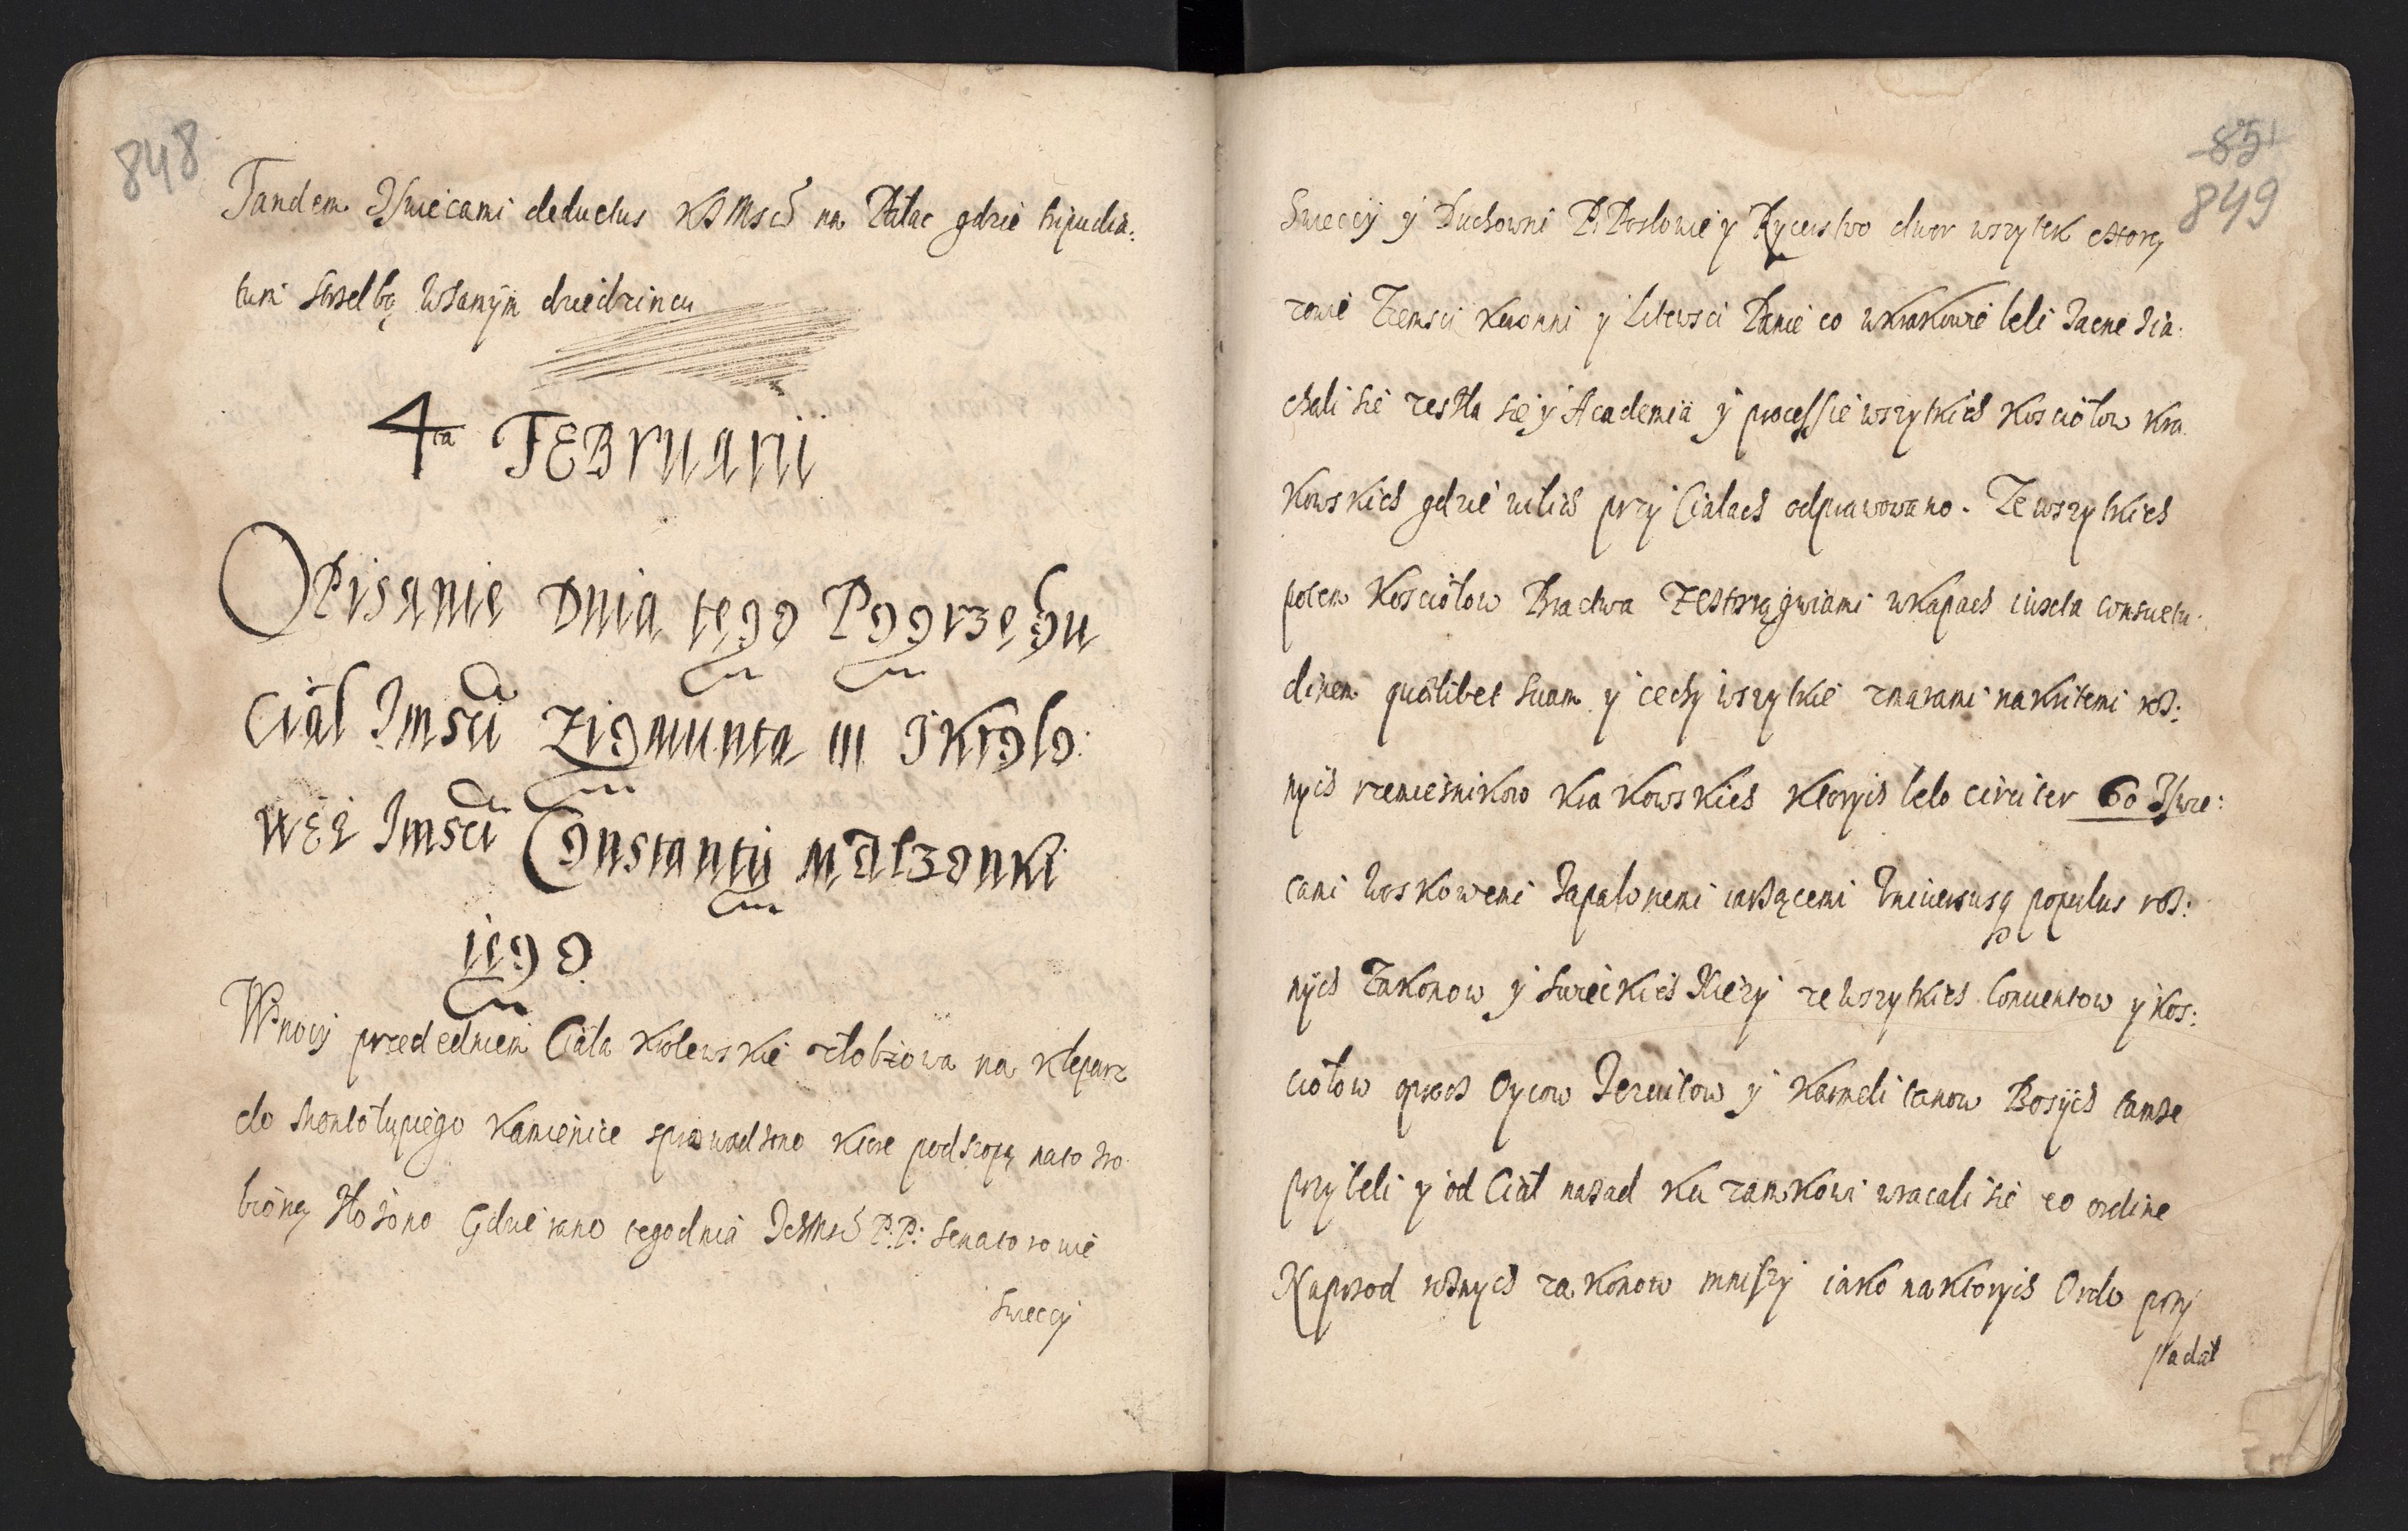 848
Tandem Zswiecami deductus KJMsć na Pałac gdzie tripudia:
tum strzelbą wsamym dziedzincu
4ta FEBruarii
OPisanie Dnia tego Pogrzebu
Ciał Jmści Zigmunta III J Krolo:
wej Jmści Constantii Małzonki
iego
W nocy przededniem Ciała Krolewskie złobzowa na Kleparz
do Montołupiego Kamienice sprowadzono Ktore pod szopą nato zro
bioną złozono Gdzie rano tegodnia IchMść P.P: Senatorowie
Swieccy
851
849
Swieccy y Duchowni P.Posłowie y Rycerstwo dwor wszytek Chorą
zowie Ziemscy Koronni y Litewscy Panie co w Krakowie beli Zacne Zia:
chali się zeszła się y Academia y processie wszytkich Kosciołow Kra
Kowskich gdzie vilie przy Ciałach odprawowano. Ze wszytkich
potem Kosciołow Bractwa Zchorągwiami wkapach iuxta consuetu:
dinem quælibet suam y cechy wszytkie zmarami nakritemi roz:
nych rzemieśnikow Krakowskich Ktorych belo circiter 60 Zswie:
cami woskowemi Zapalonemi gorzącemi Universusq populus roz:
nych Zakonow y swieckich Xięzy ze wszytkich Conventow y Kos:
ciołow oprocz Oycow Jezuitow y Karmelitanow Bosych tamze
przybeli y od Ciał nazad Ku zamkowi wracali się eo ordine
Naprzod roznych zakonow mniszy iako naktorych Ordo przy
padał